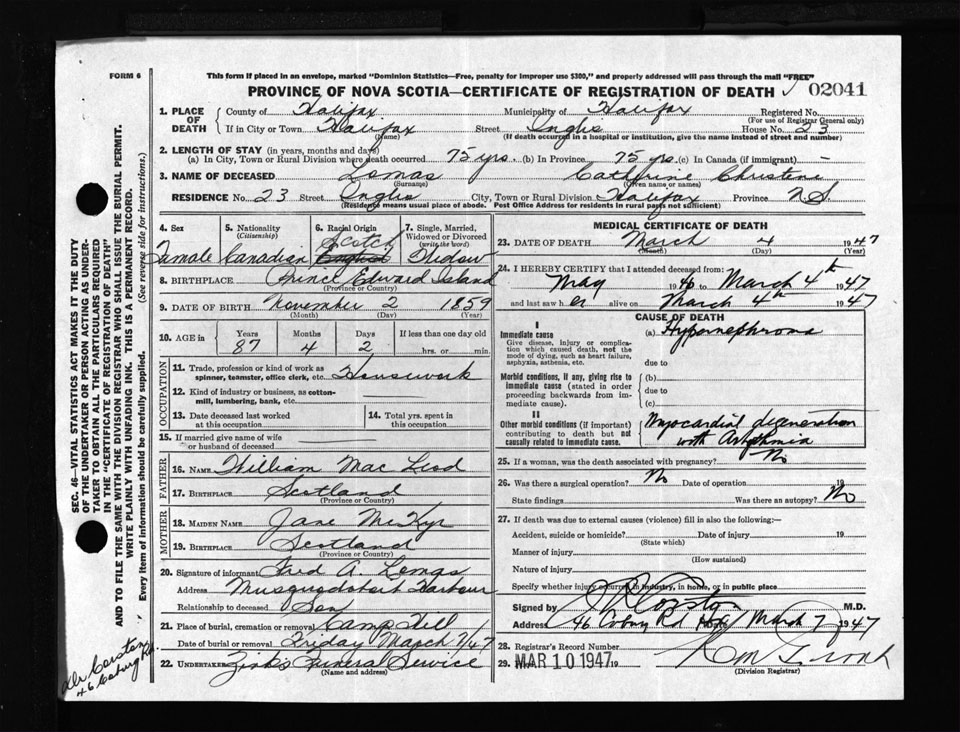 FORM 6
This form if placed in an envelope, marked "Dominion Statistics—Free, penalty for improper use $300," and properly addressed will pass through the mail "FREE"
PROVINCE OF NOVA SCOTIA—CERTIFICATE OF REGISTRATION OF DEATH 02041
1. PLACE OF DEATH County of Halifax Municipality of Halifax Registered No.
(For use of Registrar General only)
If in City or Town Halifax Street Inglis House No. 23
(Name) (If death occurred in a hospital or institution, give the name instead of street and number)
2. LENGTH OF STAY (in years, months and days)
(a) In City, Town or Rural Division where death occurred 75 yrs. (b) In Province 75 yrs. (c) In Canada (if immigrant) —
3. NAME OF DECEASED Lomas Catherine Christene
(Surname) (Given name or names)
RESIDENCE No. 23 Street Inglis City, Town or Rural Division Halifax Province N.S.
(Residence means usual place of abode. Post Office Address for residents in rural parts not sufficient)
4. Sex Female
5. Nationality (Citizenship) Canadian
6. Racial Origin Scotch English
7. Single, Married, Widowed or Divorced (write the word) Widow
8. BIRTHPLACE Prince Edward Island
(Province or Country)
9. DATE OF BIRTH November 2 1859
(Month) (Day) (Year)
10. AGE in Years 87 Months 4 Days 2 If less than one day old hrs. or min.
OCCUPATION
11. Trade, profession or kind of work as spinner, teamster, office clerk, etc. Housework
12. Kind of industry or business, as cotton-mill, lumbering, bank, etc.
13. Date deceased last worked at this occupation
14. Total yrs. spent in this occupation
15. If married give name of wife or husband of deceased
FATHER
16. NAME William Mac Leod
17. BIRTHPLACE Scotland
(Province or Country)
MOTHER
18. MAIDEN NAME Jane
19. BIRTHPLACE Scotland
(Province or Country)
20. Signature of informant Fred A. Lomas
Address Musquodoboit Harbour
Relationship to deceased Son
21. Place of burial, cremation or removal Camp Hill
Date of burial or removal Friday March 7/47
22. UNDERTAKER Zink's Funeral Service
(Name and address)
MEDICAL CERTIFICATE OF DEATH
23. DATE OF DEATH March 4 1947
(Month) (Day) (Year)
24. I HEREBY CERTIFY that I attended deceased from:
May 1946 to March 4th 1947
and last saw her alive on March 4th 1947
CAUSE OF DEATH
I
Immediate cause
Give disease, injury or complication which caused death, not the mode of dying, such as heart failure, asphyxia, asthenia, etc.
(a) Hypernephroma
due to
Morbid conditions, if any, giving rise to immediate cause (stated in order proceeding backwards from immediate cause).
(b)
due to
(c)
II
Other morbid conditions (if important) contributing to death but not causally related to immediate cause.
Myocardial degeneration with Arhythmia
25. If a woman, was the death associated with pregnancy? No
26. Was there a surgical operation? No Date of operation 19
State findings Was there an autopsy? No
27. If death was due to external causes (violence) fill in also the following:—
Accident, suicide or homicide? Date of injury 19
(State which)
Manner of injury
(How sustained)
Nature of injury
Specify whether injury occurred in industry, in home, or in public place
Signed by M.D.
Address 46 Coburg Rd March 7 1947
28. Registrar's Record Number
29. MAR 10 1947 19
(Division Registrar)
SEC. 46—VITAL STATISTICS ACT MAKES IT THE DUTY
OF THE UNDERTAKER OR PERSON ACTING AS UNDER-
TAKER TO OBTAIN ALL THE PARTICULARS REQUIRED
IN THE "CERTIFICATE OF REGISTRATION OF DEATH"
AND TO FILE THE SAME WITH THE DIVISION REGISTRAR WHO SHALL ISSUE THE BURIAL PERMIT.
WRITE PLAINLY WITH UNFADING INK. THIS IS A PERMANENT RECORD.
Every item of information should be carefully supplied. (See reverse side for instructions.)
Dr Corston
46 Coburg Rd.